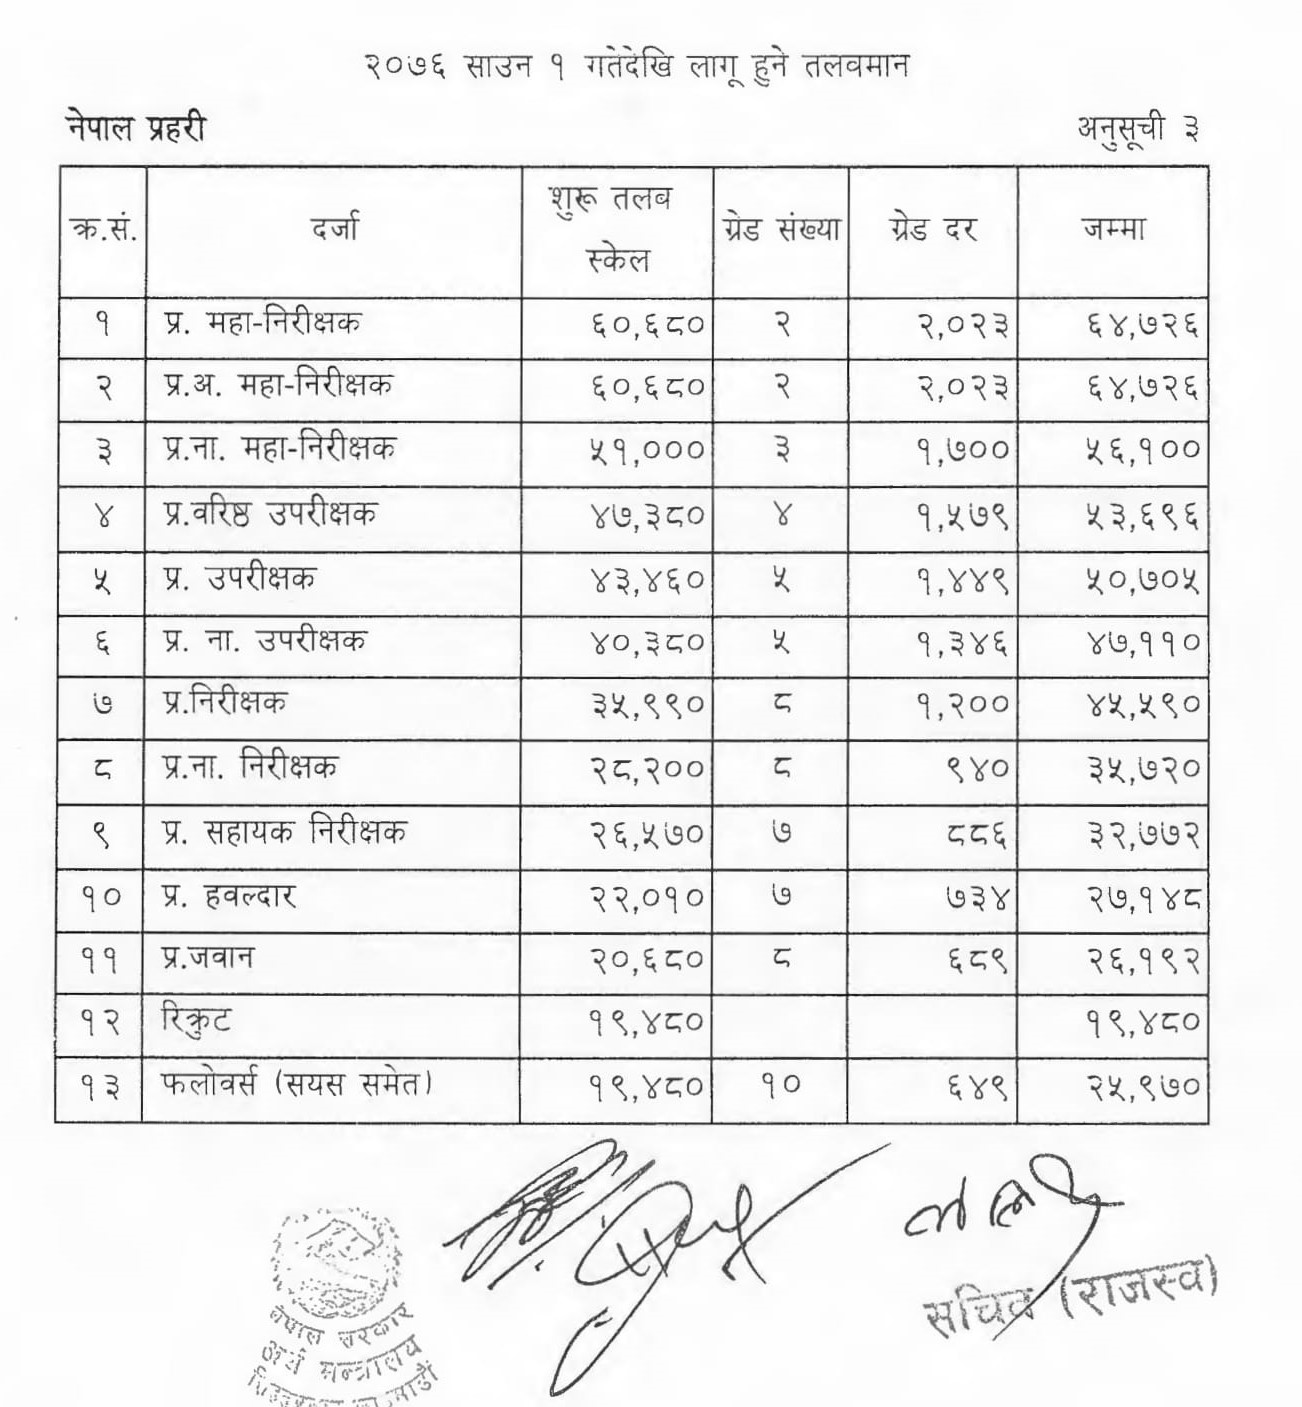 २०७६ साउन १ गतेदेखि लागू हुने तलवमान
नेपाल प्रहरी अनुसूची ३
क्र.सं. दर्जा शुरू तलब स्केल ग्रेड संख्या ग्रेड दर जम्मा
१ प्र. महा-निरीक्षक ६०,६८० २ २,०२३ ६४,७२६
२ प्र.अ. महा-निरीक्षक ६०,६८० २ २,०२३ ६४,७२६
३ प्र.ना. महा-निरीक्षक ५१,००० ३ १,७०० ५६,१००
४ प्र.वरिष्ठ उपरीक्षक ४७,३८० ४ १,५७९ ५३,६९६
५ प्र. उपरीक्षक ४३,४६० ५ १,४४९ ५०,७०५
६ प्र. ना. उपरीक्षक ४०,३८० ५ १,३४६ ४७,११०
७ प्र.निरीक्षक ३५,९९० ८ १,२०० ४५,५९०
८ प्र.ना. निरीक्षक २८,२०० ८ ९४० ३५,७२०
९ प्र. सहायक निरीक्षक २६,५७० ७ ८८६ ३२,७७२
१० प्र. हवल्दार २२,०१० ७ ७३४ २७,१४८
११ प्र.जवान २०,६८० ८ ६८९ २६,१९२
१२ रिक्रुट १९,४८० १९,४८०
१३ फलोवर्स (सयस समेत) १९,४८० १० ६४९ २५,९७०
सचिव (राजस्व)
नेपाल सरकार
अर्थ मन्त्रालय